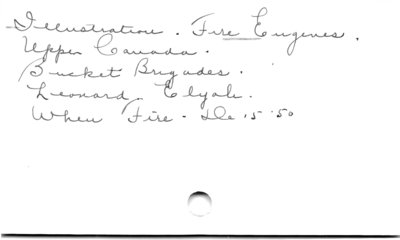 Illustration. Fire Engines.
Upper Canada.
Bucket Brigades.
Leonard, Elyah.
When Fire. De. 15. '50